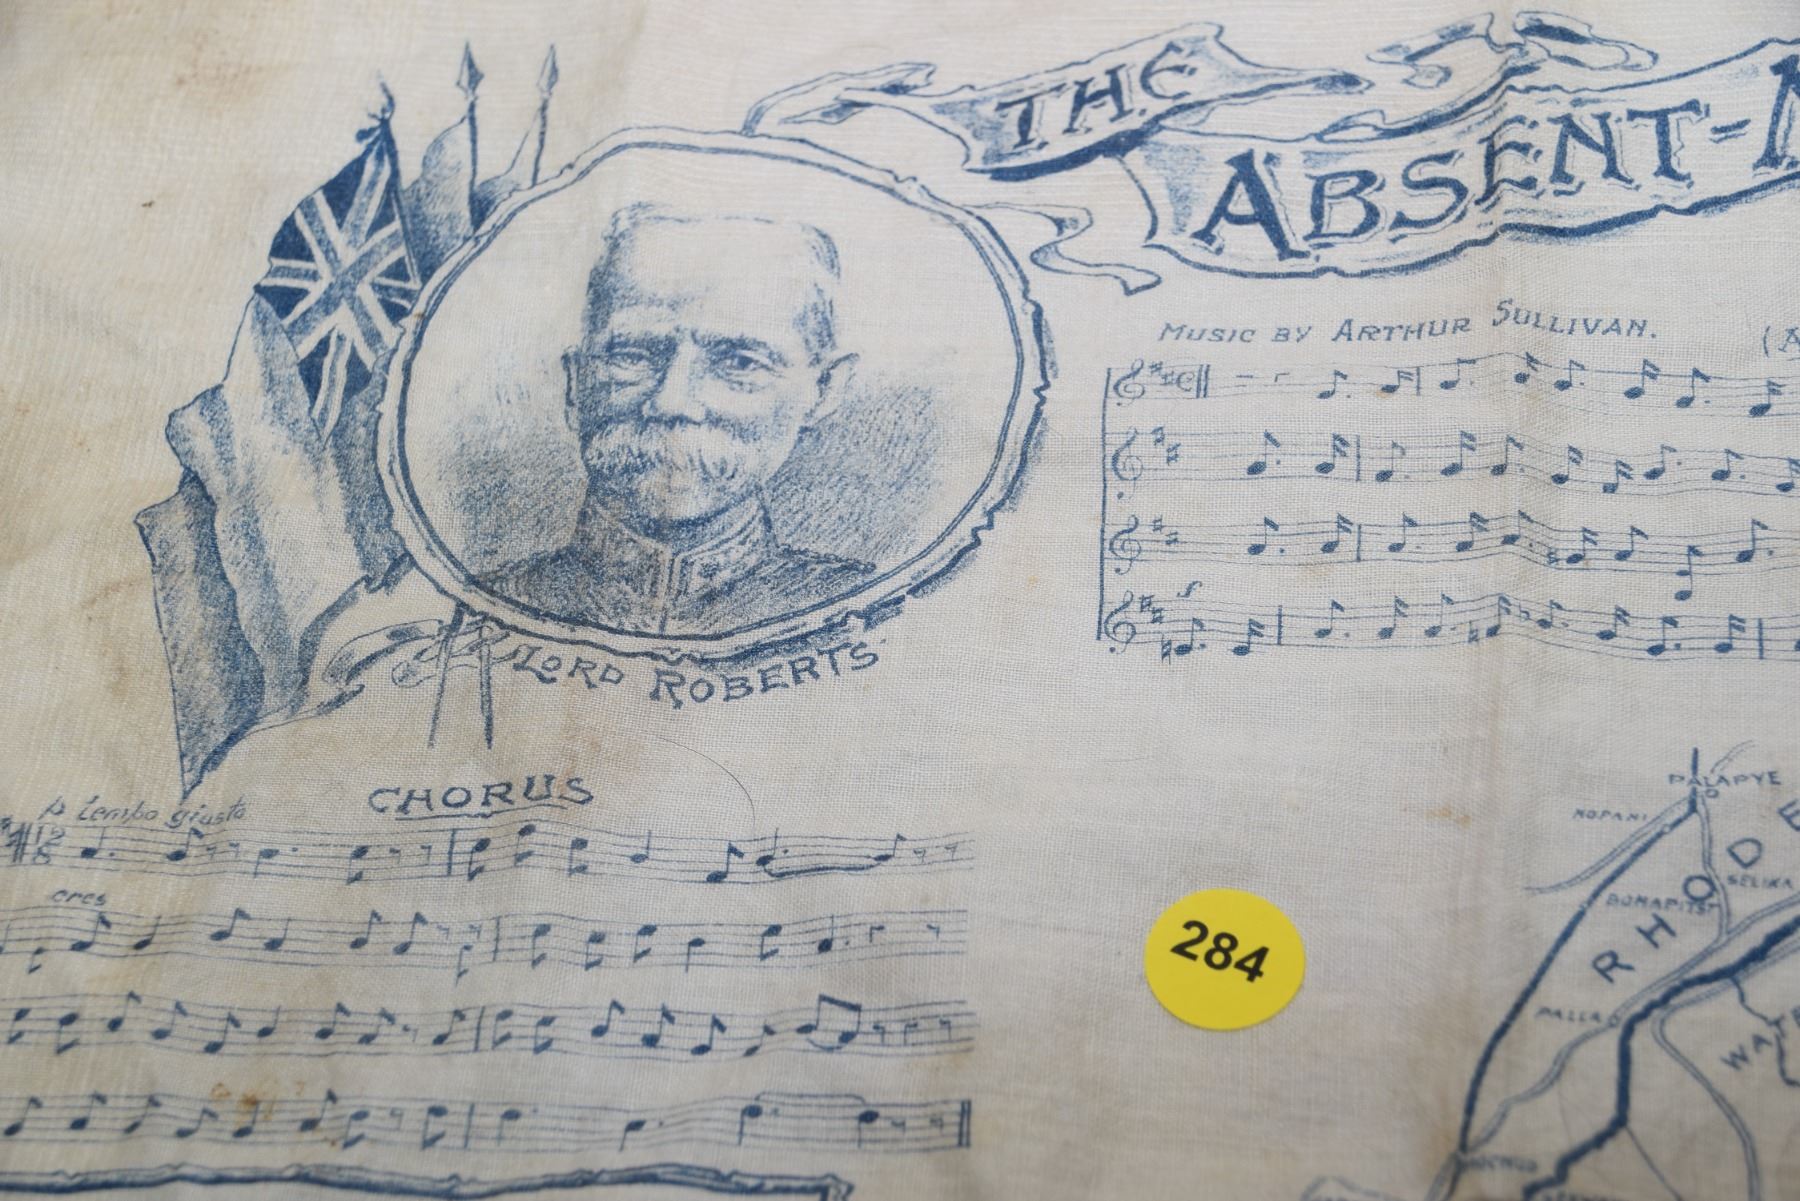 THE
ABSENT-M
MUSIC BY ARTHUR SULLIVAN. (A
LORD ROBERTS
CHORUS
p tempo giusto
cres
284
PALAPYE
MOPANI
SELIKA
RHODE
PALLA
WATE